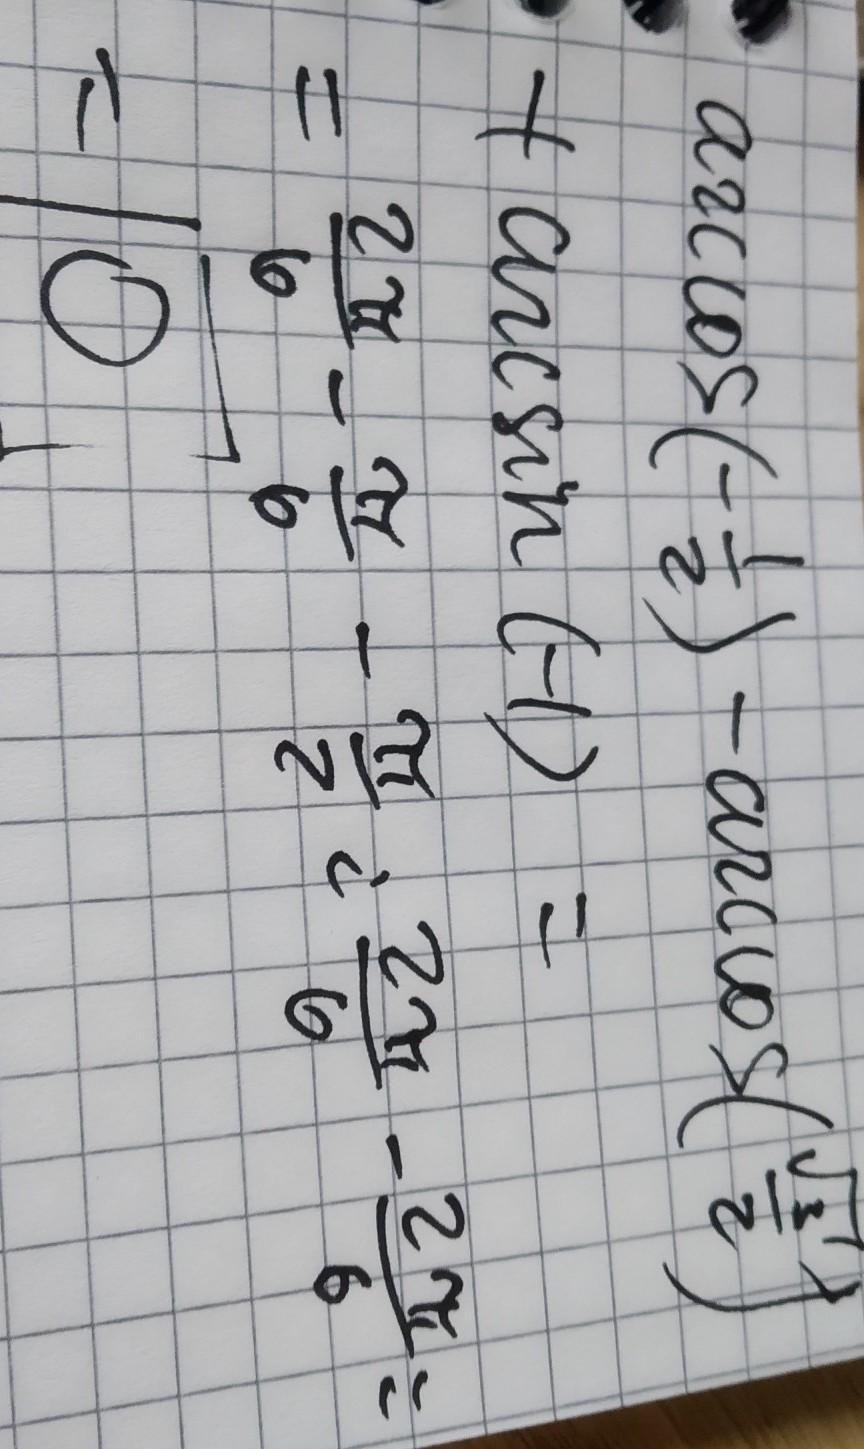 arccos(-1/2) - arccos(√3/2)
+ arcsin(-1) =
= 2π/6 - π/6 - π/2 = 2π/6 - 2π/6 =
= 0